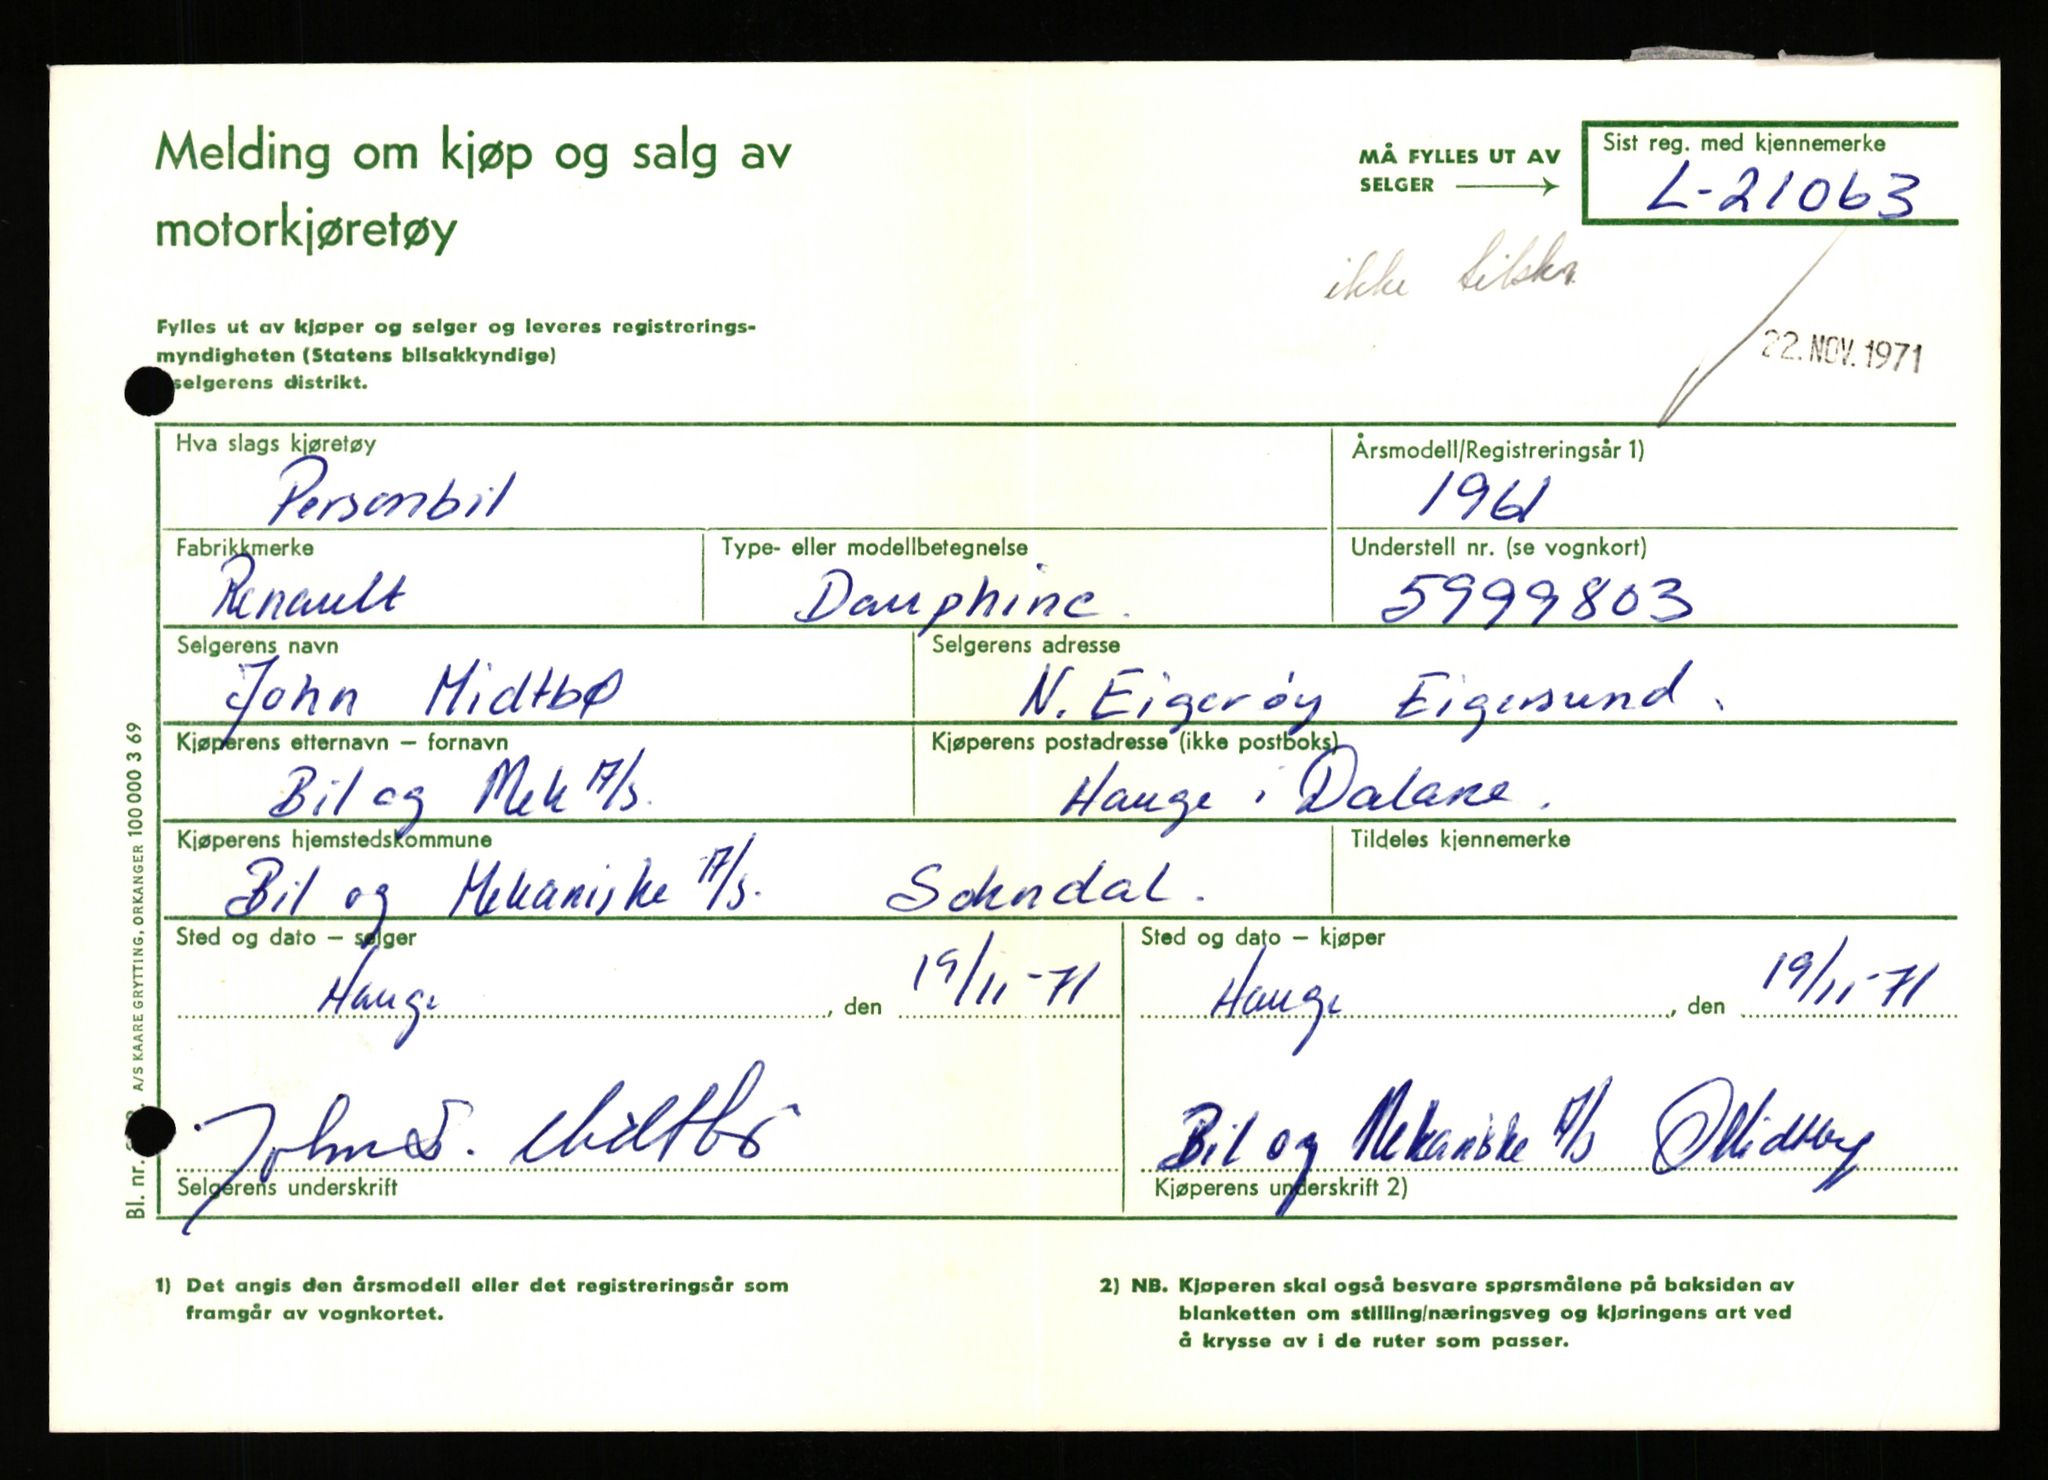 Melding om kjøp og salg av
motorkjøretøy
MÅ FYLLES UT AV
SELGER
Sist reg. med kjennemerke
L-21063
ikke tilskr.
22. NOV. 1971
Fylles ut av kjøper og selger og leveres registrerings-
myndigheten (Statens bilsakkyndige)
selgerens distrikt.
Hva slags kjøretøy
Personbil
Årsmodell/Registreringsår 1)
1961
Fabrikkmerke
Renault
Type- eller modellbetegnelse
Dauphine.
Understell nr. (se vognkort)
5999803
Selgerens navn
John Midtbø
Selgerens adresse
N. Eigerøy Eigersund.
Kjøperens etternavn – fornavn
Bil og Mek A/S.
Kjøperens postadresse (ikke postboks)
Hauge i Dalane.
Kjøperens hjemstedskommune
Bil og Mekaniske A/S. Sokndal.
Tildeles kjennemerke
Sted og dato – selger
Hauge, den 19/11-71
Sted og dato – kjøper
Hauge, den 19/11-71
John S. Midtbø
Selgerens underskrift
Bil og Mekaniske A/S O Midtbø
Kjøperens underskrift 2)
1) Det angis den årsmodell eller det registreringsår som
framgår av vognkortet.
2) NB. Kjøperen skal også besvare spørsmålene på baksiden av
blanketten om stilling/næringsveg og kjøringens art ved
å krysse av i de ruter som passer.
Bl. nr. A/S KAARE GRYTTING, ORKANGER 100 000 3 69